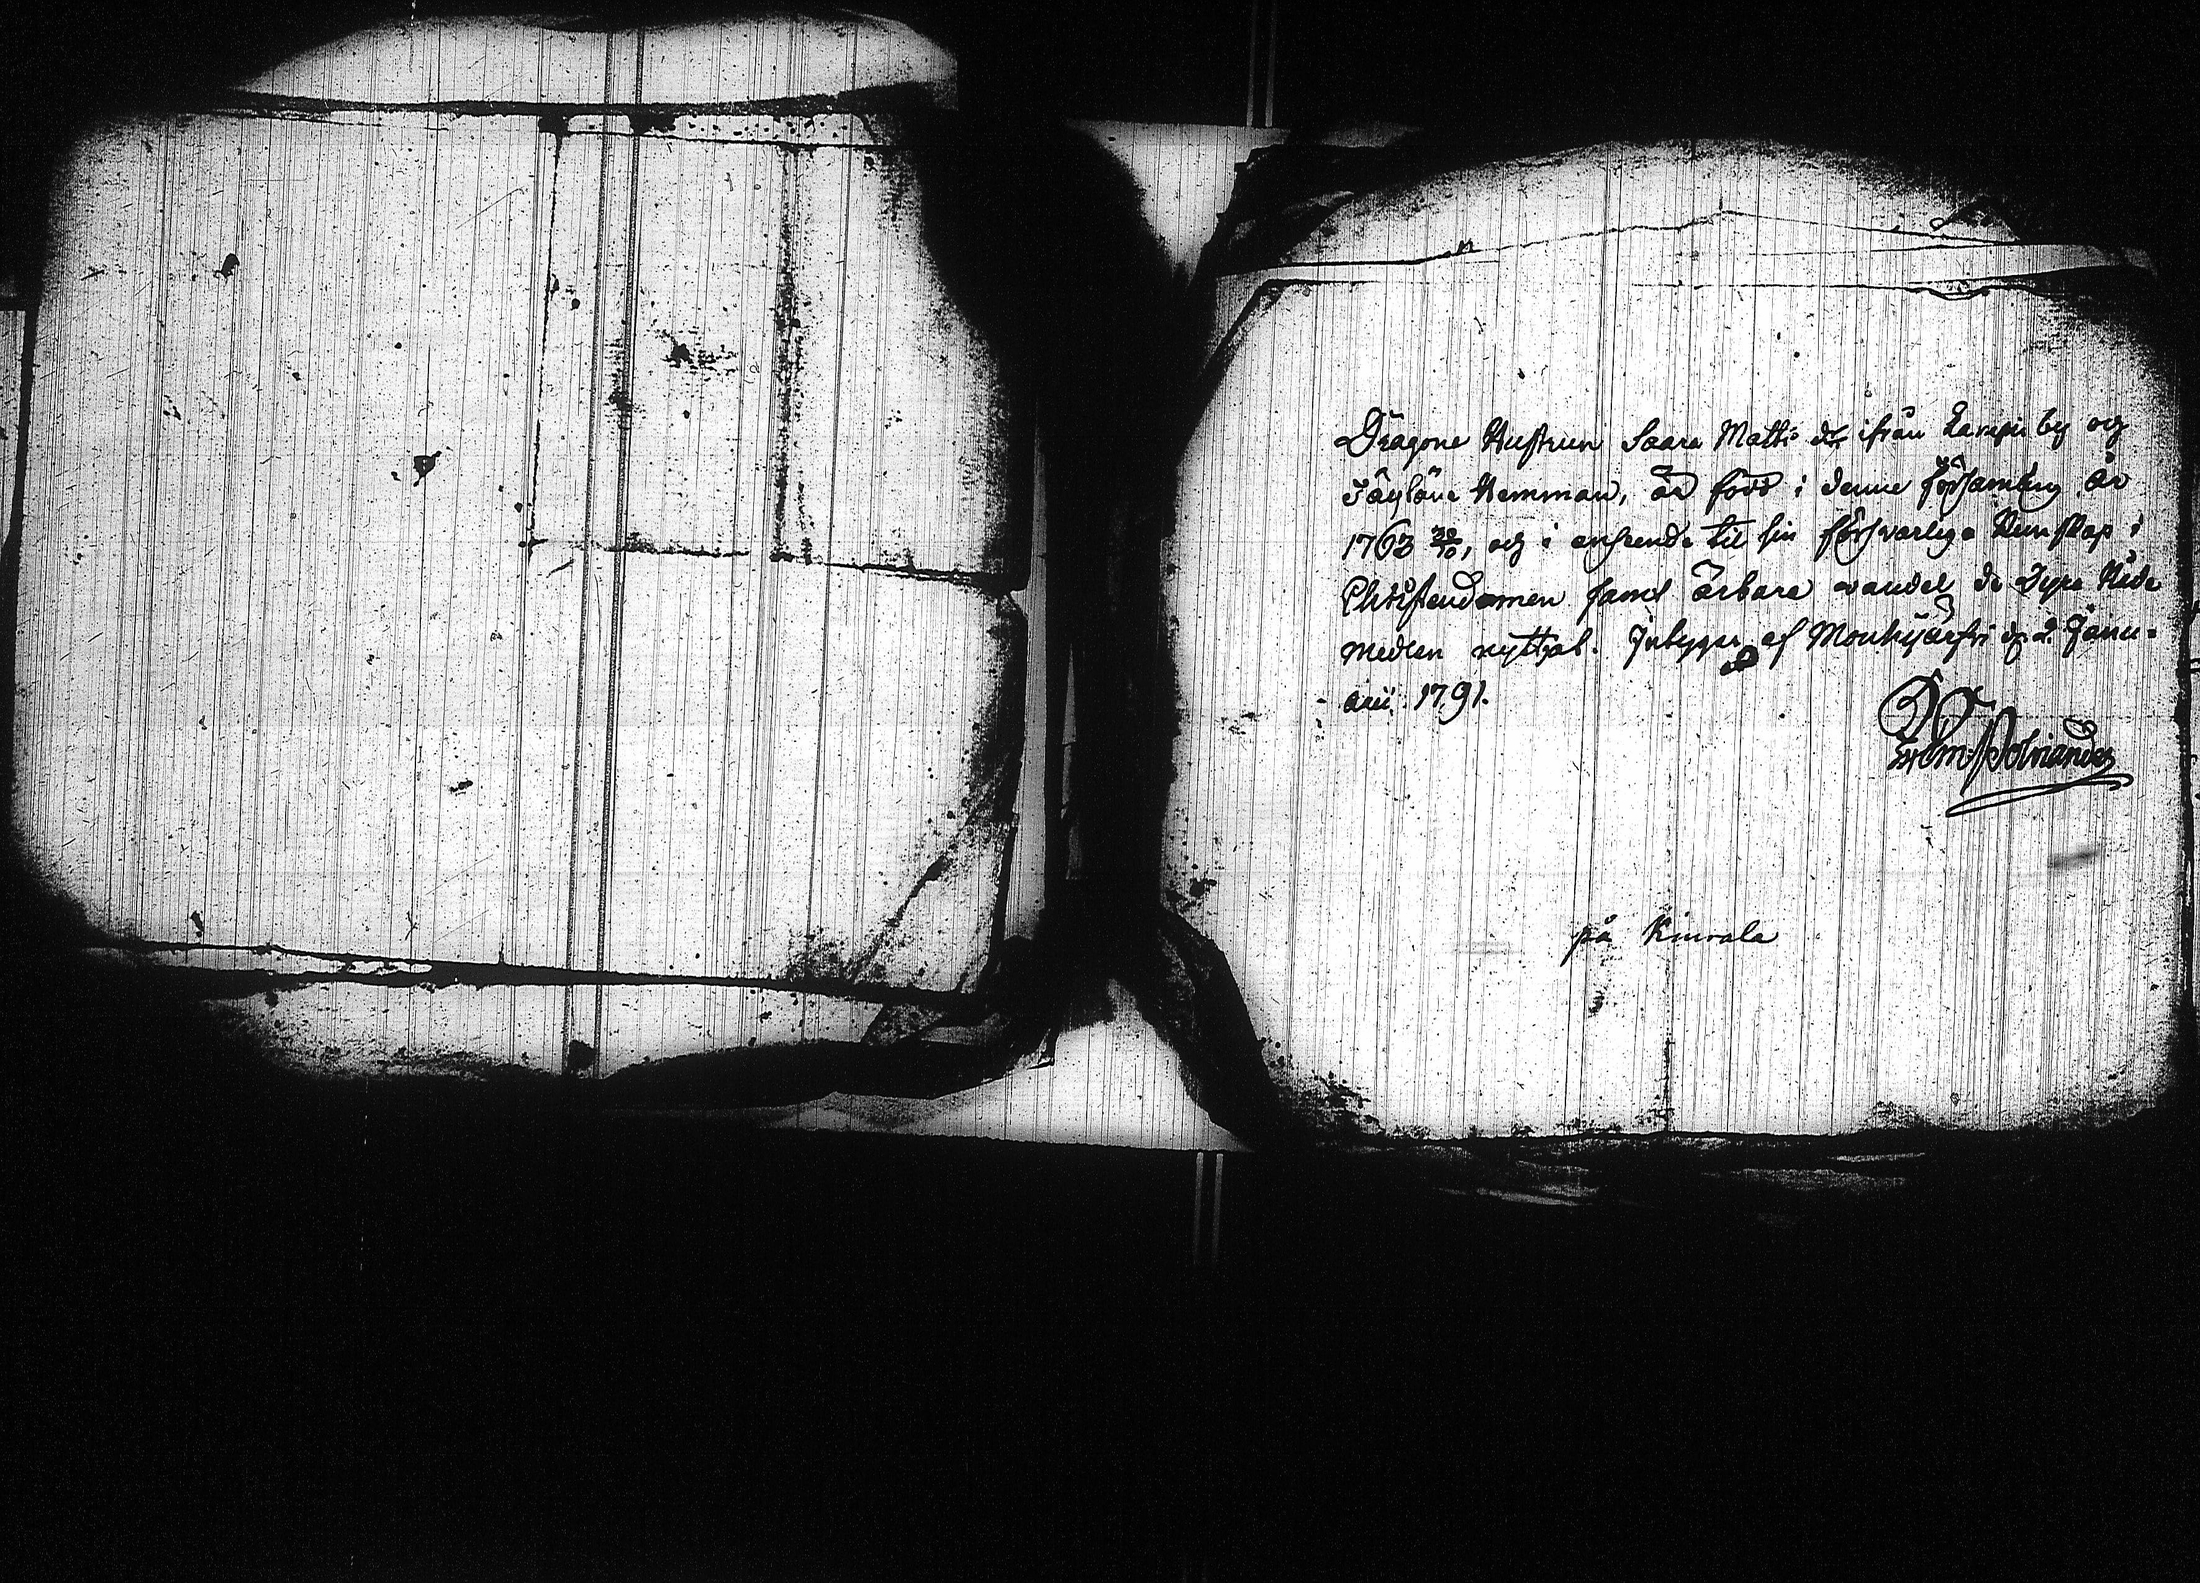 Dragone Hustrun Saara Matts dr ifrån Lampi by og
hemman, är född i denne församling år
1763 20/10, og i anseende til sin försvarliga Kunskap i
Christendomen samt ärbara vandel de dyre Nåde
medlen nyttjat. Intygar af Mouhijärfvi d. 2 Janu-
arii. 1791.
på Kiurala